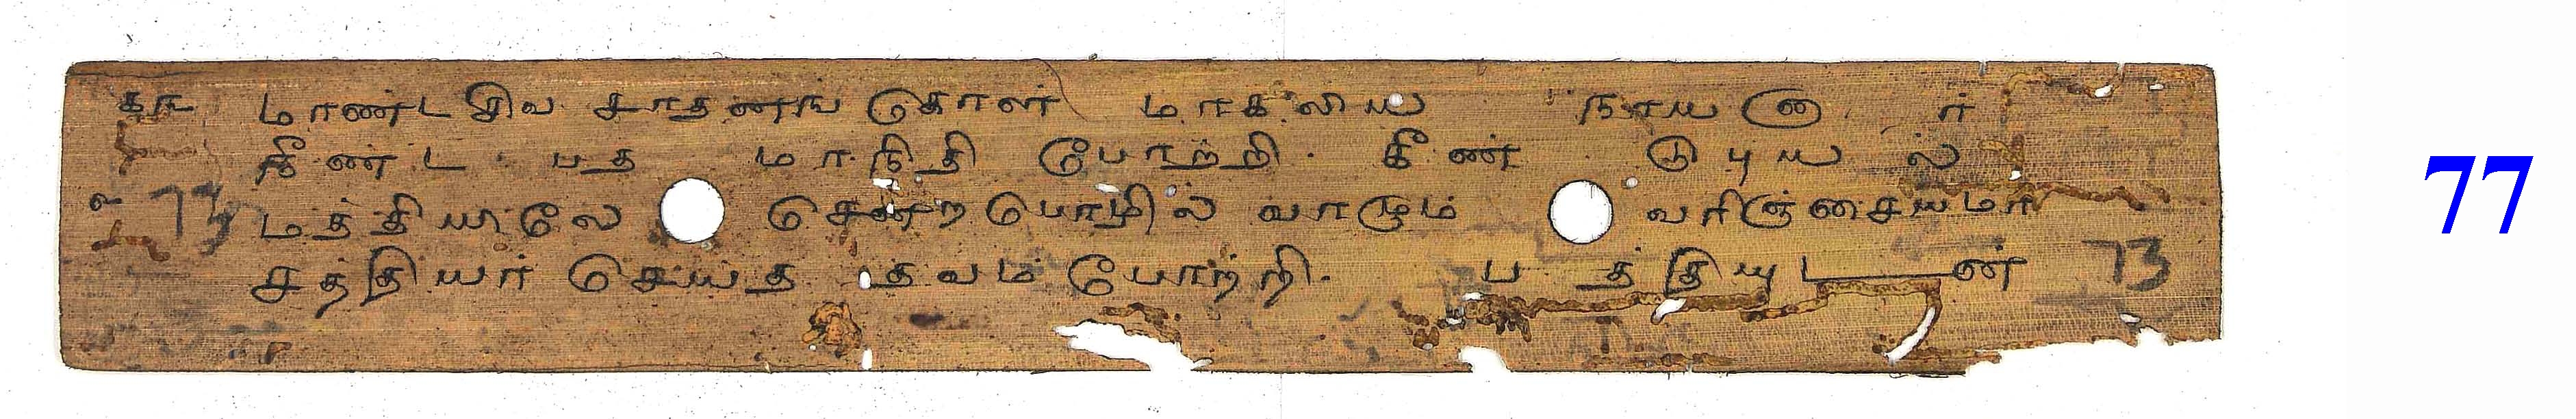 கரு மாண்டசிவ சாதனங் கொள் மாகலிய நாயனார்
நீண்ட பத மாநிதி போற்றி. கீண் டுபுயல்
உ 73 மத்தியிலே சென்றபொழில் வாழும் வரிஞ்சையமர்
சத்தியர் செய்த தவம் போற்றி. பத்தியுடன் 73
77